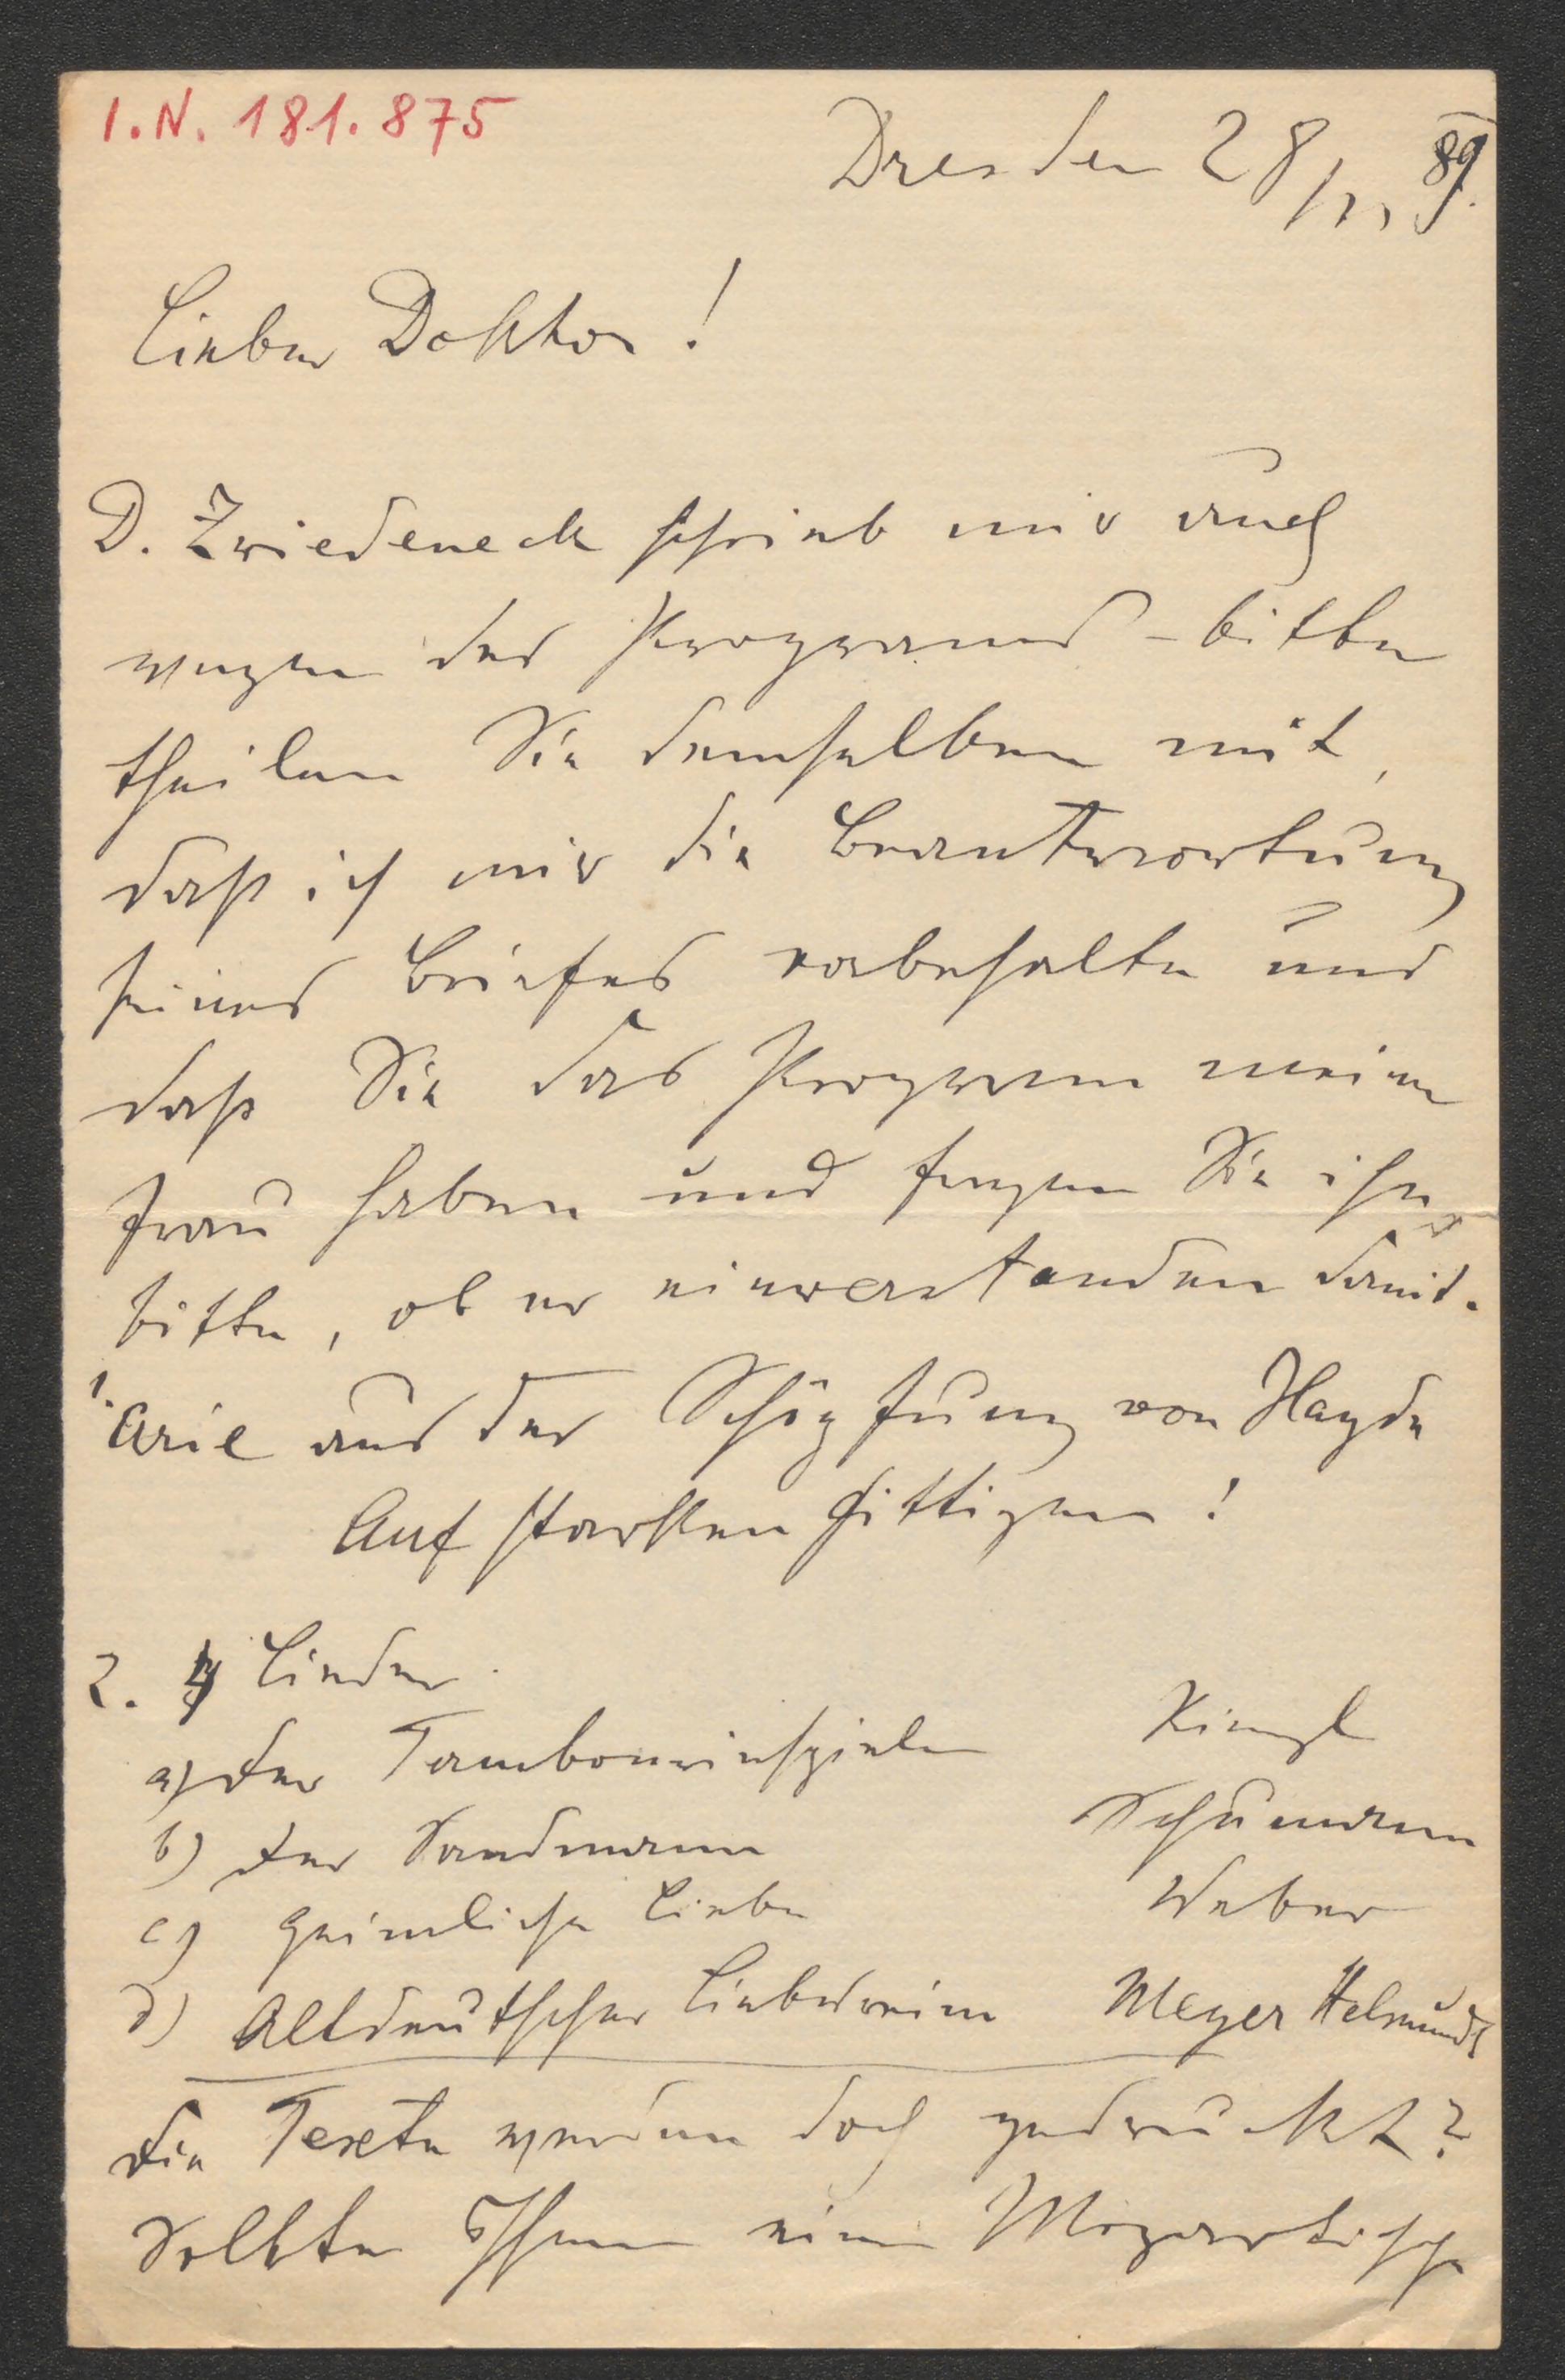 I.N. 181.875
Dresden 28/11 89.
Lieber Doktor!
D. Zwiedeneck schrieb mir auch
wegen des Programms - bitte
theilen Sie demselben mit,
daß ich mir die Beantwortung
seines Briefes vorbehalte und
daß Sie das Programm meiner
Frau haben und fragen Sie ihn
bitte, ob er einverstanden damit.
1. Arie aus der Schöpfung von Haydn
Auf starken Fittigen!
2. 4 Lieder.
a) Der Tambourinspieler Kienzl
b) Der Sandmann Schumann
c) Heimliche Liebe Weber
d) Altdeutscher Liebesreim Meyer Helmund
Die Texte werden doch gedruckt?
Sollte Ihnen eine Mozartische